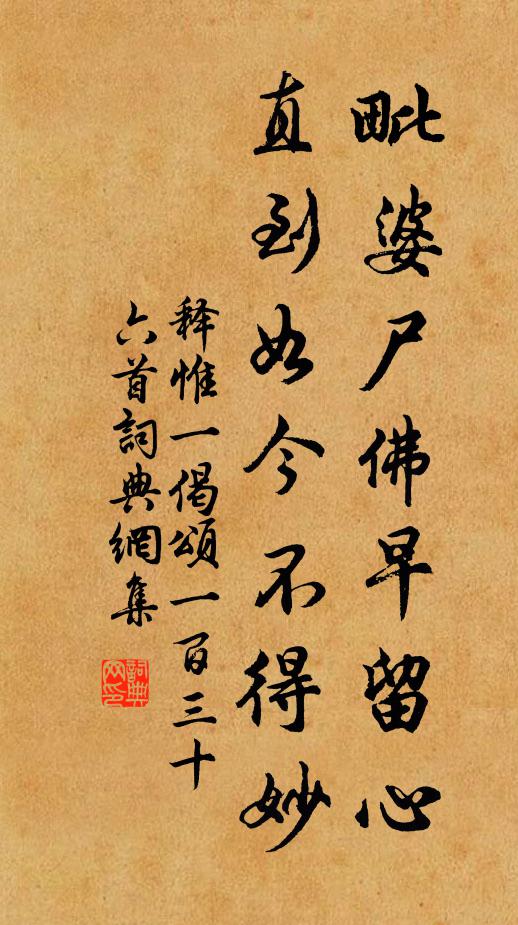 毗婆尸佛早留心
直到如今不得妙
释惟一偈頌一百三十
六首詞典網集
詞典網印